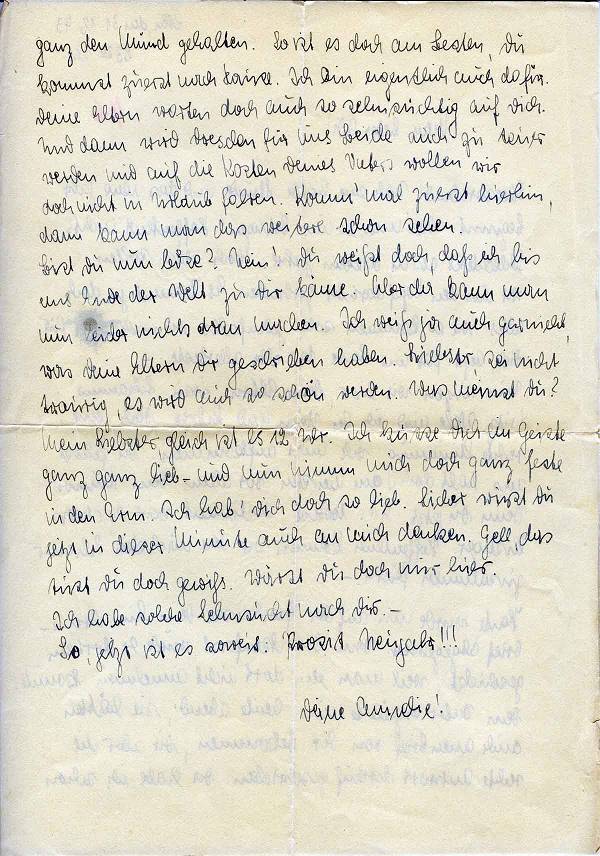 ganz den Mund gehalten. So ist es doch am besten, du
kommst zuerst nach Hause. Ich bin eigentlich auch dafür.
Deine Eltern warten doch auch so sehnsüchtig auf dich.
Und dann wird Dresden für uns beide auch zu teuer
werden und auf die Kosten deines Vaters wollen wir
doch nicht in Urlaub fahren. Komm' mal zuerst hierhin,
dann kann man das weitere schon sehen.
Bist du nun böse? Nein! Du weißt doch, daß ich bis
ans Ende der Welt zu dir käme. Aber da kann man
nun leider nichts dran machen. Ich weiß ja auch garnicht,
was deine Eltern dir geschrieben haben. Liebster sei nicht
traurig, es wird auch so schön werden. Was meinst du?
Mein Liebster gleich ist es 12 Uhr. Ich küsse dich im Geiste
ganz ganz lieb - und nun nimm mich doch ganz feste
in den Arm. Ich hab' dich doch so lieb. Sicher wirst du
jetzt in dieser Minute auch an mich denken. Gell das
tust du doch gewiß. Wärst du doch nur hier.
Ich habe solche Sehnsucht nach dir. -
So, jetzt ist es soweit. Prosit Neujahr!!!
Deine